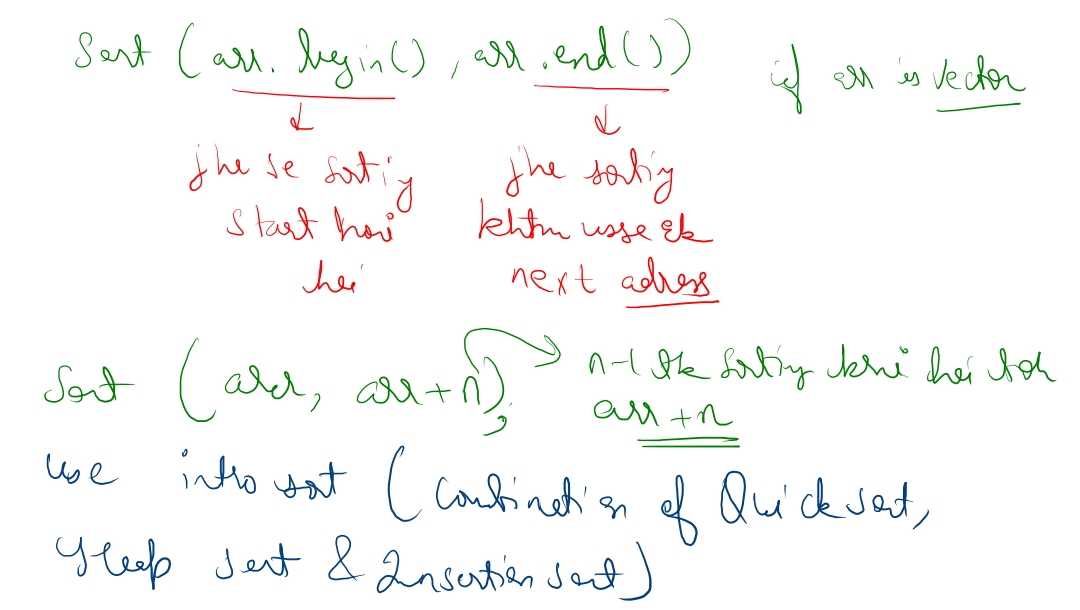 Sort (arr.begin(), arr.end()) if arr is vector
jhe se sorting jhe sorting
start hori khtm usse ek
hei next adress
Sort (arr, arr+n); n-1 tk sorting krni hei toh
arr+n
use intro sort (Combination of Quick sort,
Heap sort & Insertion sort)